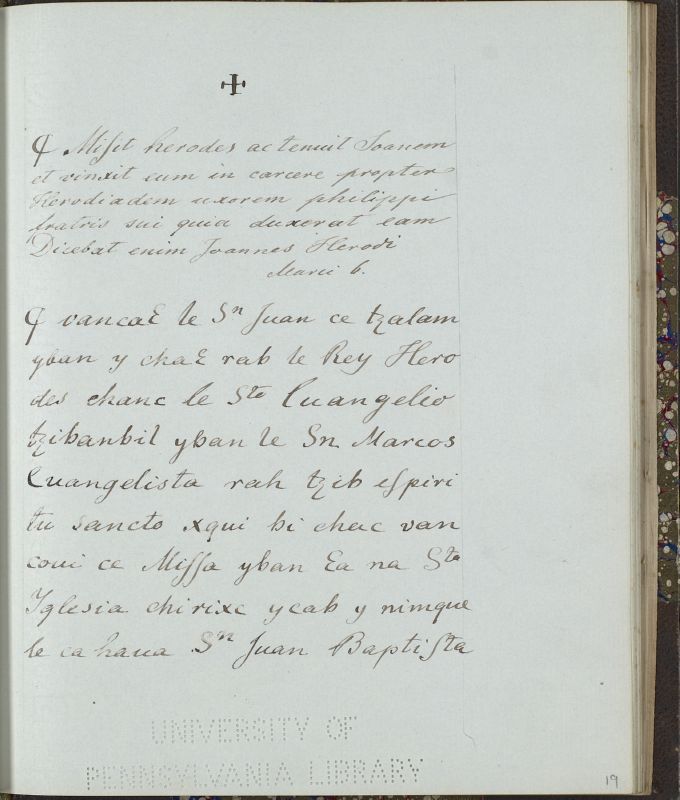 ✠
¶ Missit herodes ac tenuit Joanem
et vinxit eum in carcere propter
Herodiadem uxorem philippi
fratris sui quia duxerat eam
Dicebat enim Joannes Herodi
Marci 6.
¶ vancaɛ le Sn Juan ce tzalam
yban y chaɛ rab le Rey Hero
des chanc le Sto Euangelio
tzibanbil yban le Sn Marcos
Euangelista rah tzib espiri
tu sancto xqui bi chac van
coui ce Missa yban ɛa na Sta
Yglesia chirixc ycab y nimque
le ca haua Sn Juan Baptista
UNIVERSITY OF
PENNSYLVANIA LIBRARY
19